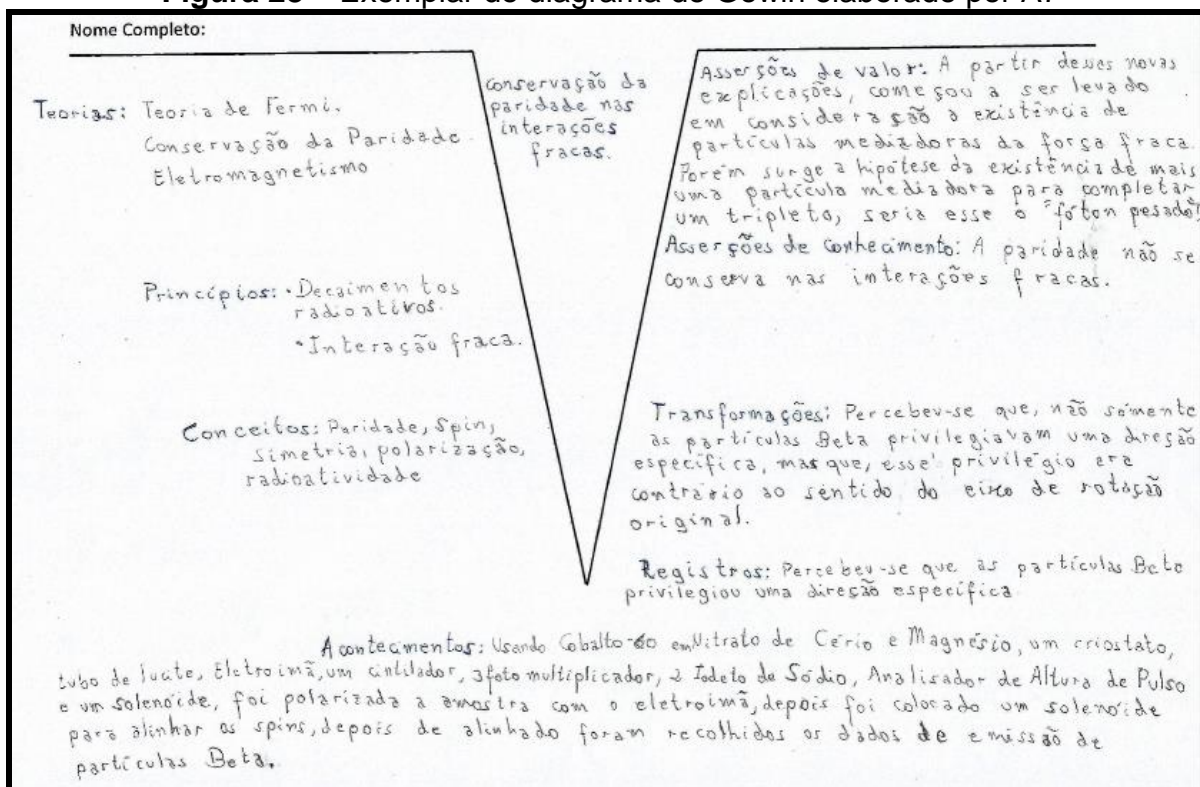 Nome Completo:
Teorias: Teoria de Fermi.
Conservação da Paridade.
Eletromagnetismo
Princípios: • Decaimentos
radioativos.
• Interação fraca.
Conceitos: Paridade, Spin,
simetria, polarização,
radioatividade
conservação da
paridade nas
interações
fracas.
Asserções de valor: A partir desses novas
explicações, começou a ser levado
em consideração a existência de
partículas mediadoras da força fraca.
Porém surge a hipótese da existência de mais
uma partícula mediadora para completar
um tripleto, seria esse o "fóton pesado".
Asserções de Conhecimento: A paridade não se
conserva nas interações fracas.
Transformações: Percebeu-se que, não somente
as partículas Beta privilegiavam uma direção
específica, mas que, esse privilégio era
contrário ao sentido do eixo de rotação
original.
Registros: Percebeu-se que as partículas Beta
privilegiou uma direção específica.
Acontecimentos: Usando Cobalto-60 em Nitrato de Cério e Magnésio, um criostato,
tubo de lucite, Eletroimã, um cintilador, fotomultiplicador, 2 Iodeto de Sódio, Analisador de Altura de Pulso
e um solenoíde, foi polarizada a amostra com o eletroimã, depois foi colocado um solenoíde
para alinhar os spins, depois de alinhado foram recolhidos os dados de emissão de
partículas Beta.